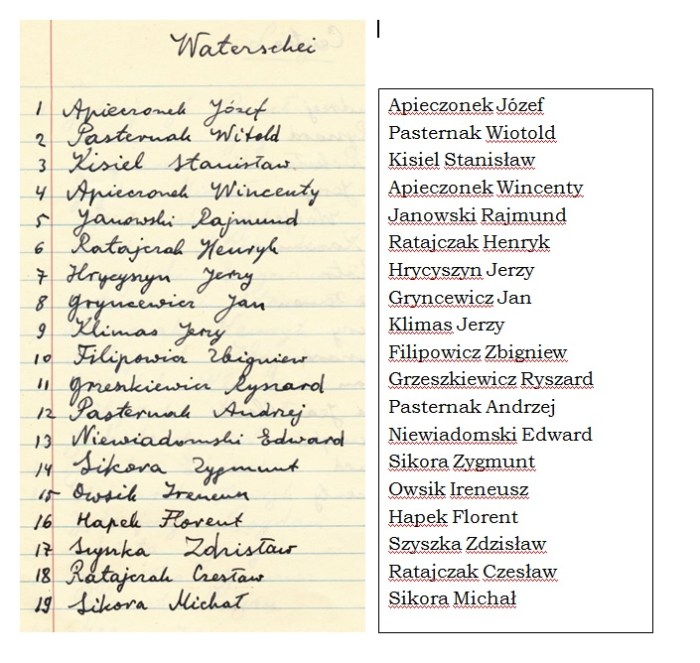 Waterschei
1 Apieczonek Józef
2 Pasternak Witold
3 Kisiel Stanisław
4 Apieczonek Wincenty
5 Janowski Rajmund
6 Ratajczak Henryk
7 Hrycyszyn Jerzy
8 Gryncewicz Jan
9 Klimas Jerzy
10 Filipowicz Zbigniew
11 Grzeszkiewicz Ryszard
12 Pasternak Andrzej
13 Niewiadomski Edward
14 Sikora Zygmunt
15 Owsik Ireneusz
16 Hapek Florent
17 Szyszka Zdzisław
18 Ratajczak Czesław
19 Sikora Michał
Apieczonek Józef
Pasternak Wiotold
Kisiel Stanisław
Apieczonek Wincenty
Janowski Rajmund
Ratajczak Henryk
Hrycyszyn Jerzy
Gryncewicz Jan
Klimas Jerzy
Filipowicz Zbigniew
Grzeszkiewicz Ryszard
Pasternak Andrzej
Niewiadomski Edward
Sikora Zygmunt
Owsik Ireneusz
Hapek Florent
Szyszka Zdzisław
Ratajczak Czesław
Sikora Michał